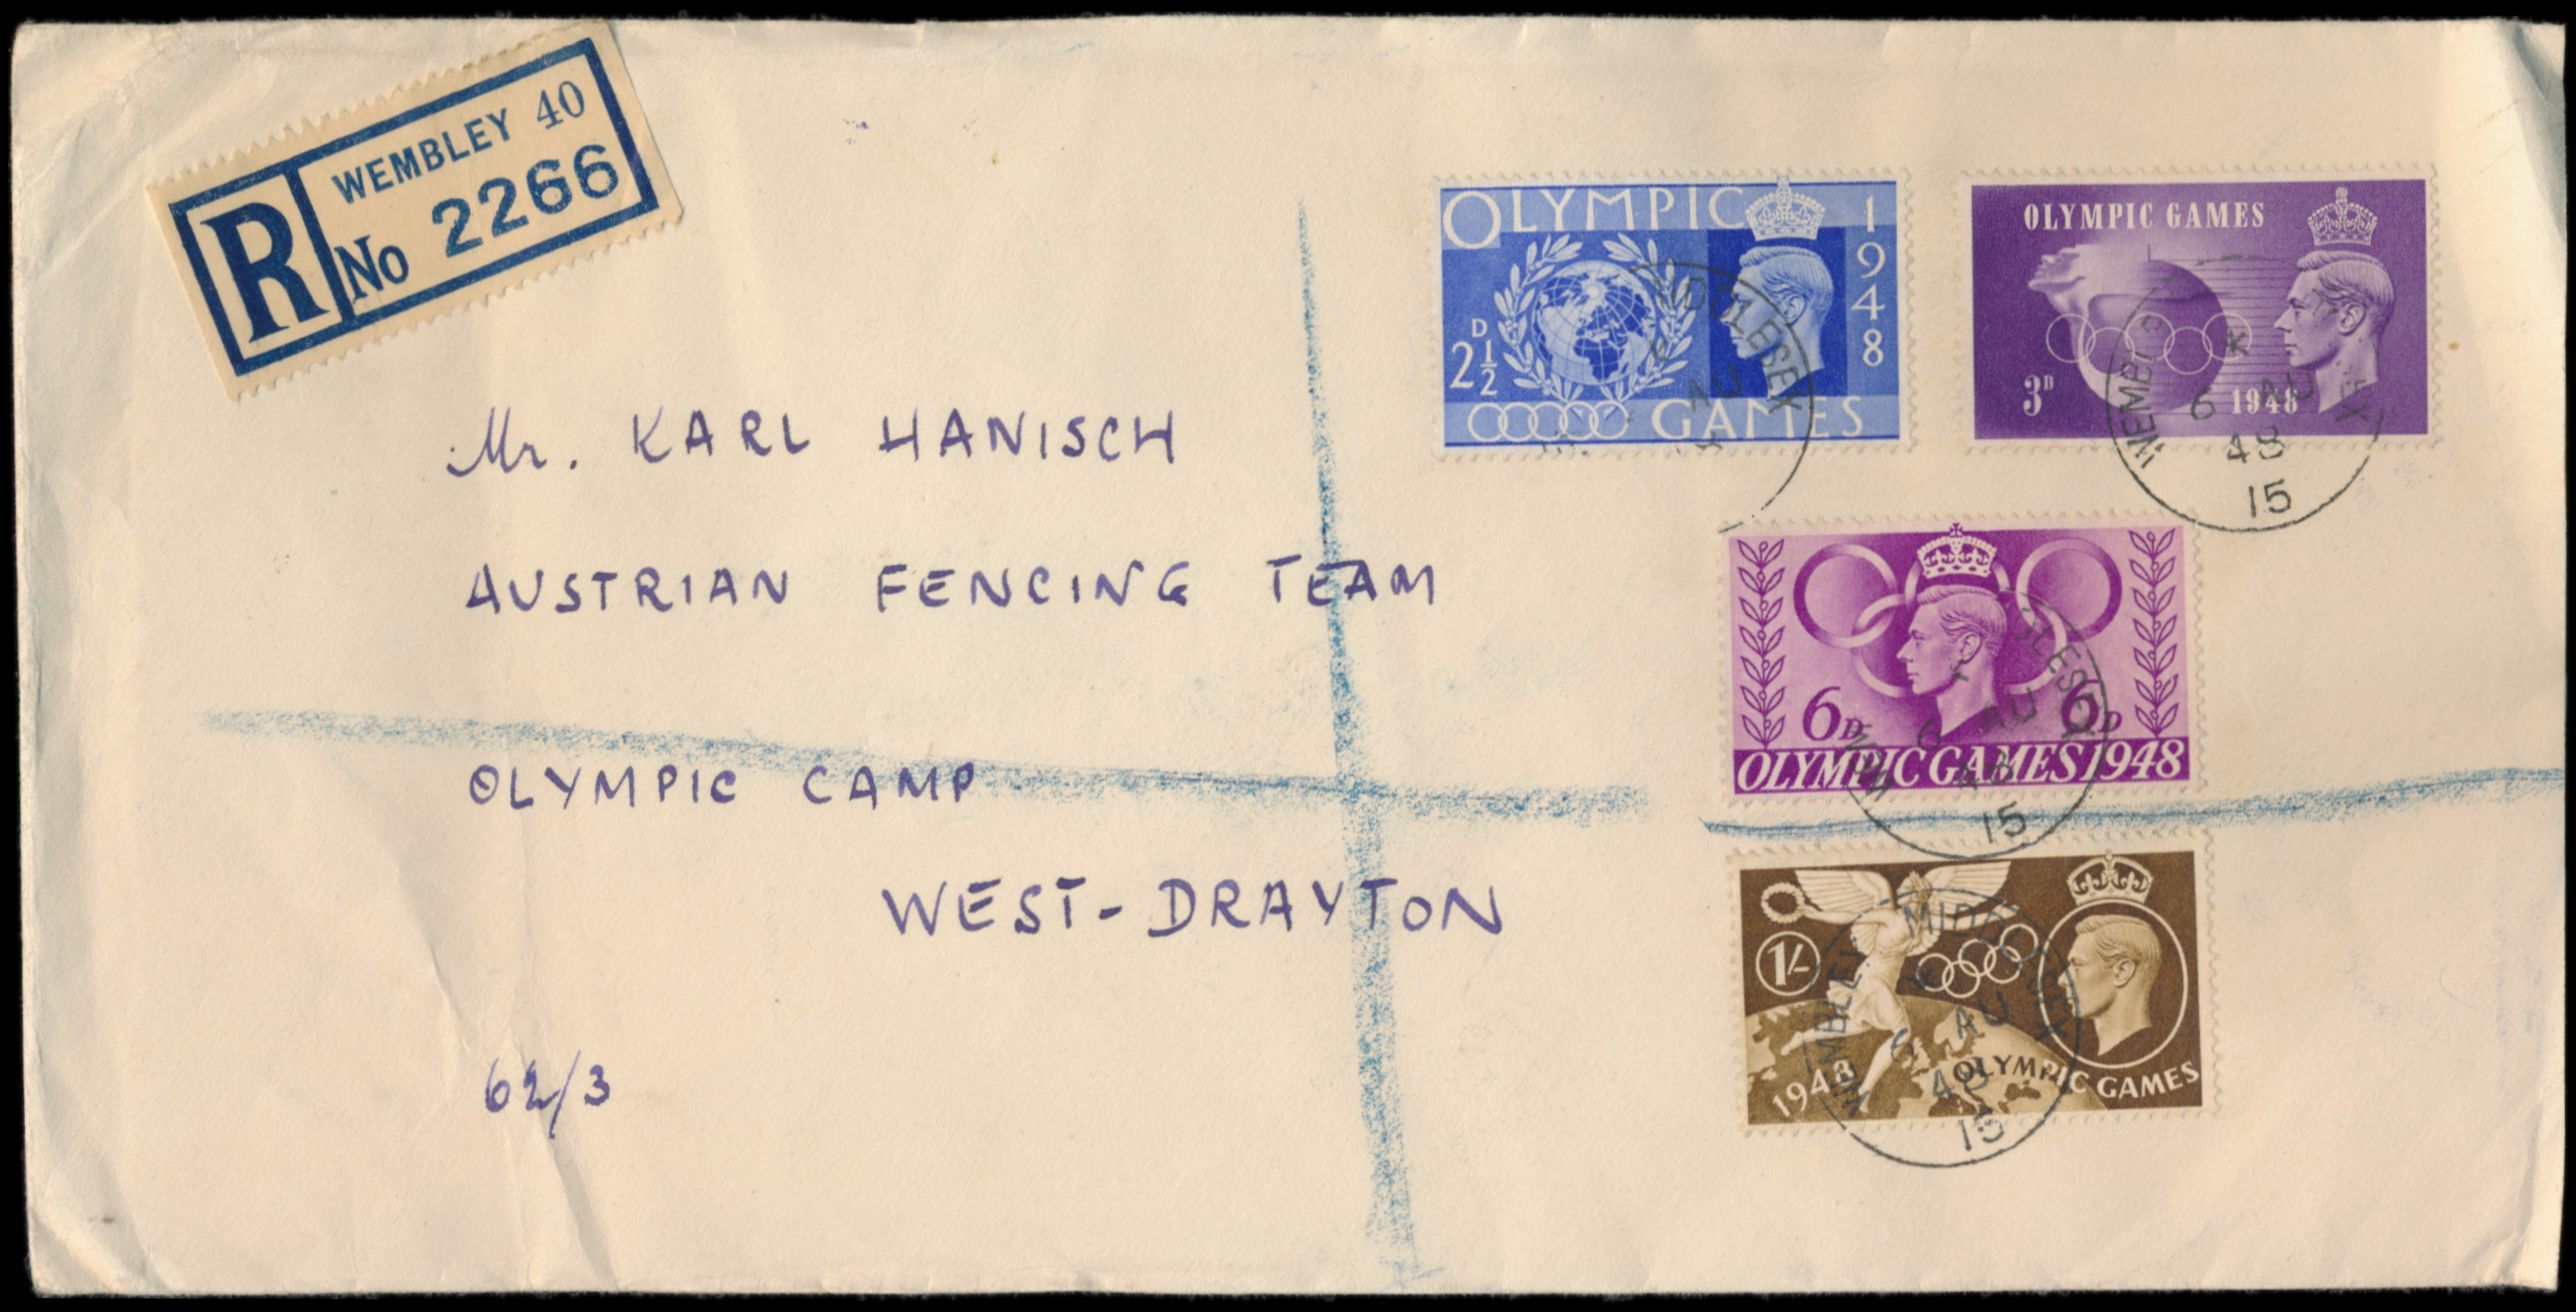 WEMBLEY 40
R No 2266
OLYMPIC 1948
2½D
GAMES
OLYMPIC GAMES
3D 1948
WEMBLEY
K
6 AU
48
15
Mr. KARL HANISCH
AUSTRIAN FENCING TEAM
OLYMPIC CAMP
WEST-DRAYTON
62/3
6D 6D
OLYMPIC GAMES 1948
AU
48
15
1/-
1948 OLYMPIC GAMES
WEMBLEY MIDDLESEX
K
6 AU
48
15